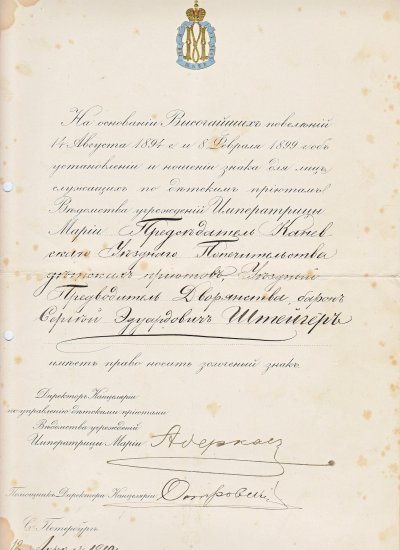 На основании Высочайшихъ повелѣній
14 Августа 1894 г. и 8 Февраля 1899 г. объ
установленіи и ношеніи знака для лицъ,
служащихъ по дѣтскимъ пріютамъ
Вѣдомства учрежденій Императрицы
Маріи Предсѣдатель Канев-
скаго Уѣзднаго Попечительства
дѣтскихъ пріютовъ, Уѣздный
Предводитель Дворянства, баронъ
Сергѣй Эдуардовичъ Штейгеръ
имѣетъ право носить золоченый знакъ.
Директоръ Канцеляріи
по управленію дѣтскими пріютами
Вѣдомства учрежденій
Императрицы Маріи
Помощникъ Директора Канцеляріи
С. Петербургъ